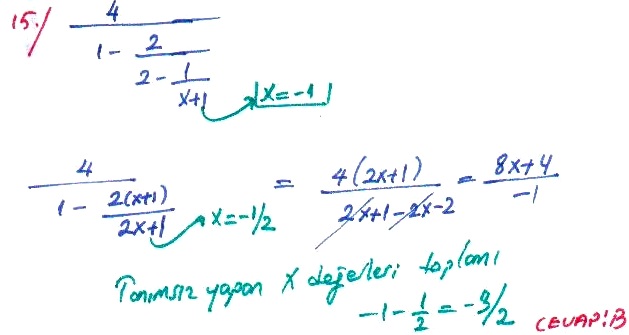 15./ 4 / (1 - 2 / (2 - 1 / (x+1))) → x = -1
4 / (1 - 2(x+1) / (2x+1)) → x = -1/2 = 4(2x+1) / (2x+1-2x-2) = 8x+4 / -1
Tanımsız yapan x değerleri toplamı
-1 - 1/2 = -3/2
CEVAP: B